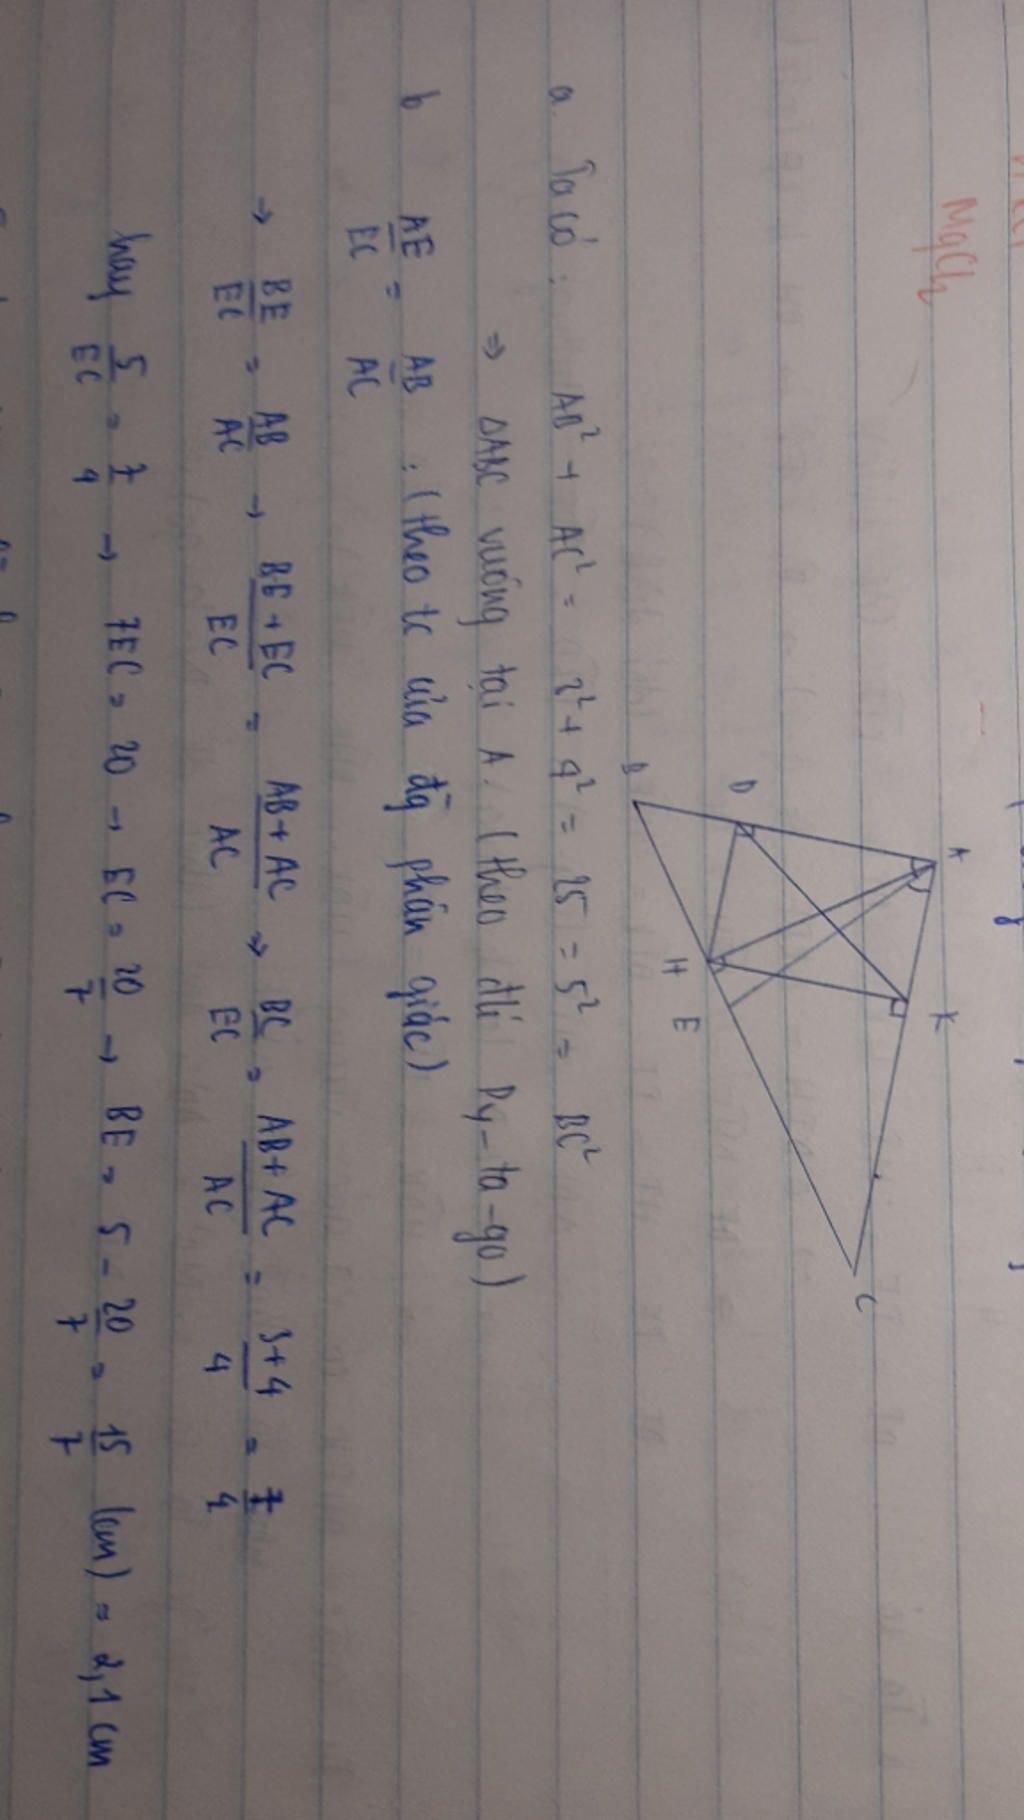 MgCl2
A
K
D
B
H
E
C
a. Ta có : AB² + AC² = 3² + 4² = 25 = 5² = BC²
⇒ ΔABC vuông tại A. (theo đlí Py-ta-go)
b AE/EC = AB/AC : (theo tc của đg phân giác)
→ BE/EC = AB/AC → BE + EC/EC = AB + AC/AC ⇒ BC/EC = AB + AC/AC = 3+4/4 = 7/4
hay 5/EC = 7/4 → 7EC = 20 → EC = 20/7 → BE = 5 - 20/7 = 15/7 (cm) = 2,1 cm